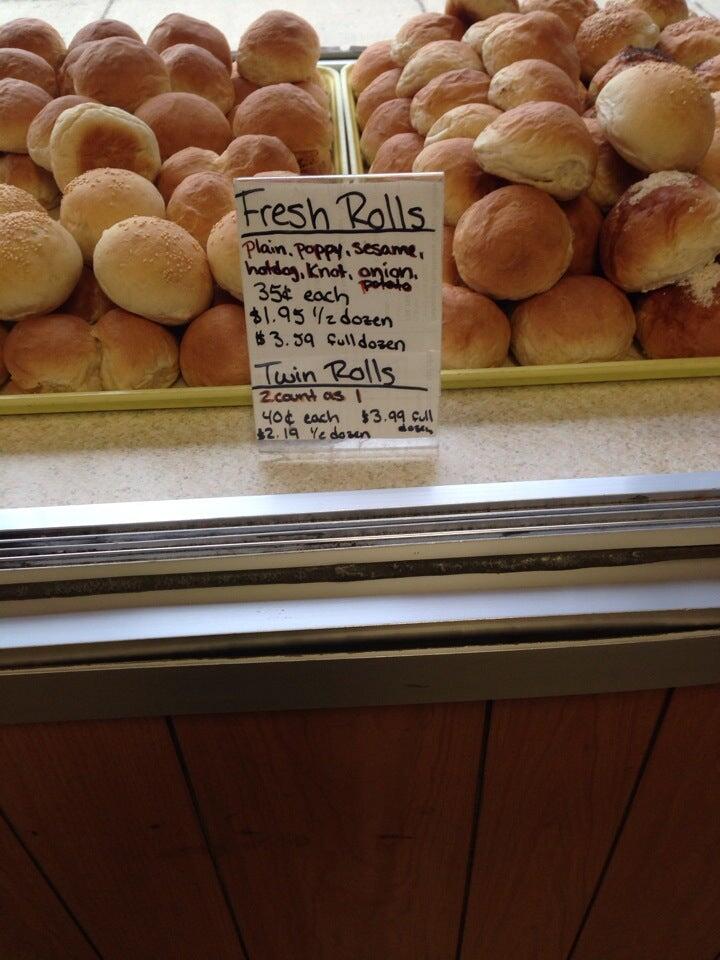 Fresh Rolls
Plain, poppy, sesame,
hotdog, Knot, onion,
potato
35¢ each
$1.95 1/2 dozen
$3.59 full dozen
Twin Rolls
2 count as 1
40¢ each $3.99 full
dozen
$2.19 1/2 dozen